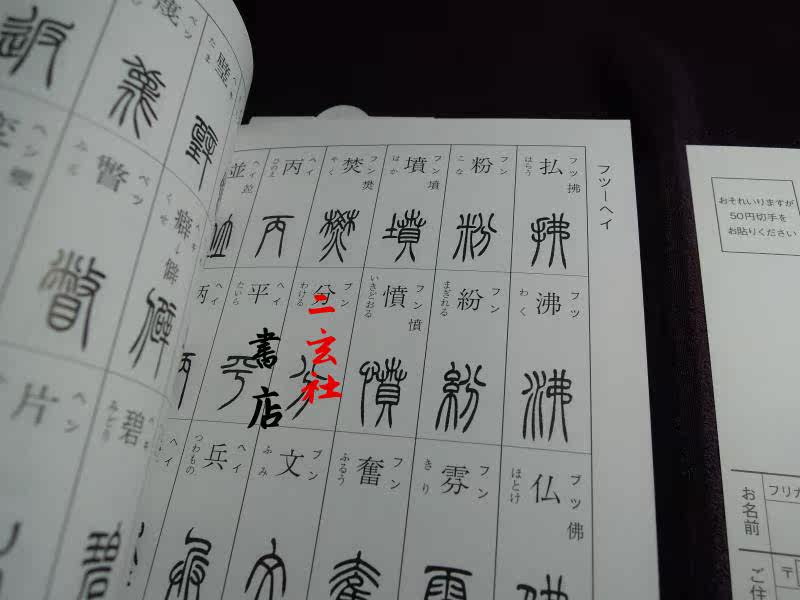 フツーヘイ
払 フツ 拂 はらう
粉 フン こな
墳 フン 墳 はか
焚 フン 樊 やく
丙 ヘイ ひのえ
並 ヘイ 竝
沸 フツ わく
紛 フン まぎれる
憤 フン 憤 いきどおる
分 ブン わける
平 ヘイ たいら
仏 フツ 佛 ほとけ
雰 フン きり
奮 フン ふるう
文 ブン ふみ
兵 ヘイ つわもの
璧 ヘキ たま
癖 ヘキ くせ
碧 ヘキ みどり
瞥 ベツ みる
片 ヘン
二玄社
書店
おそれいりますが
50円切手を
お貼りください
フリガ
お名前
〒
ご住